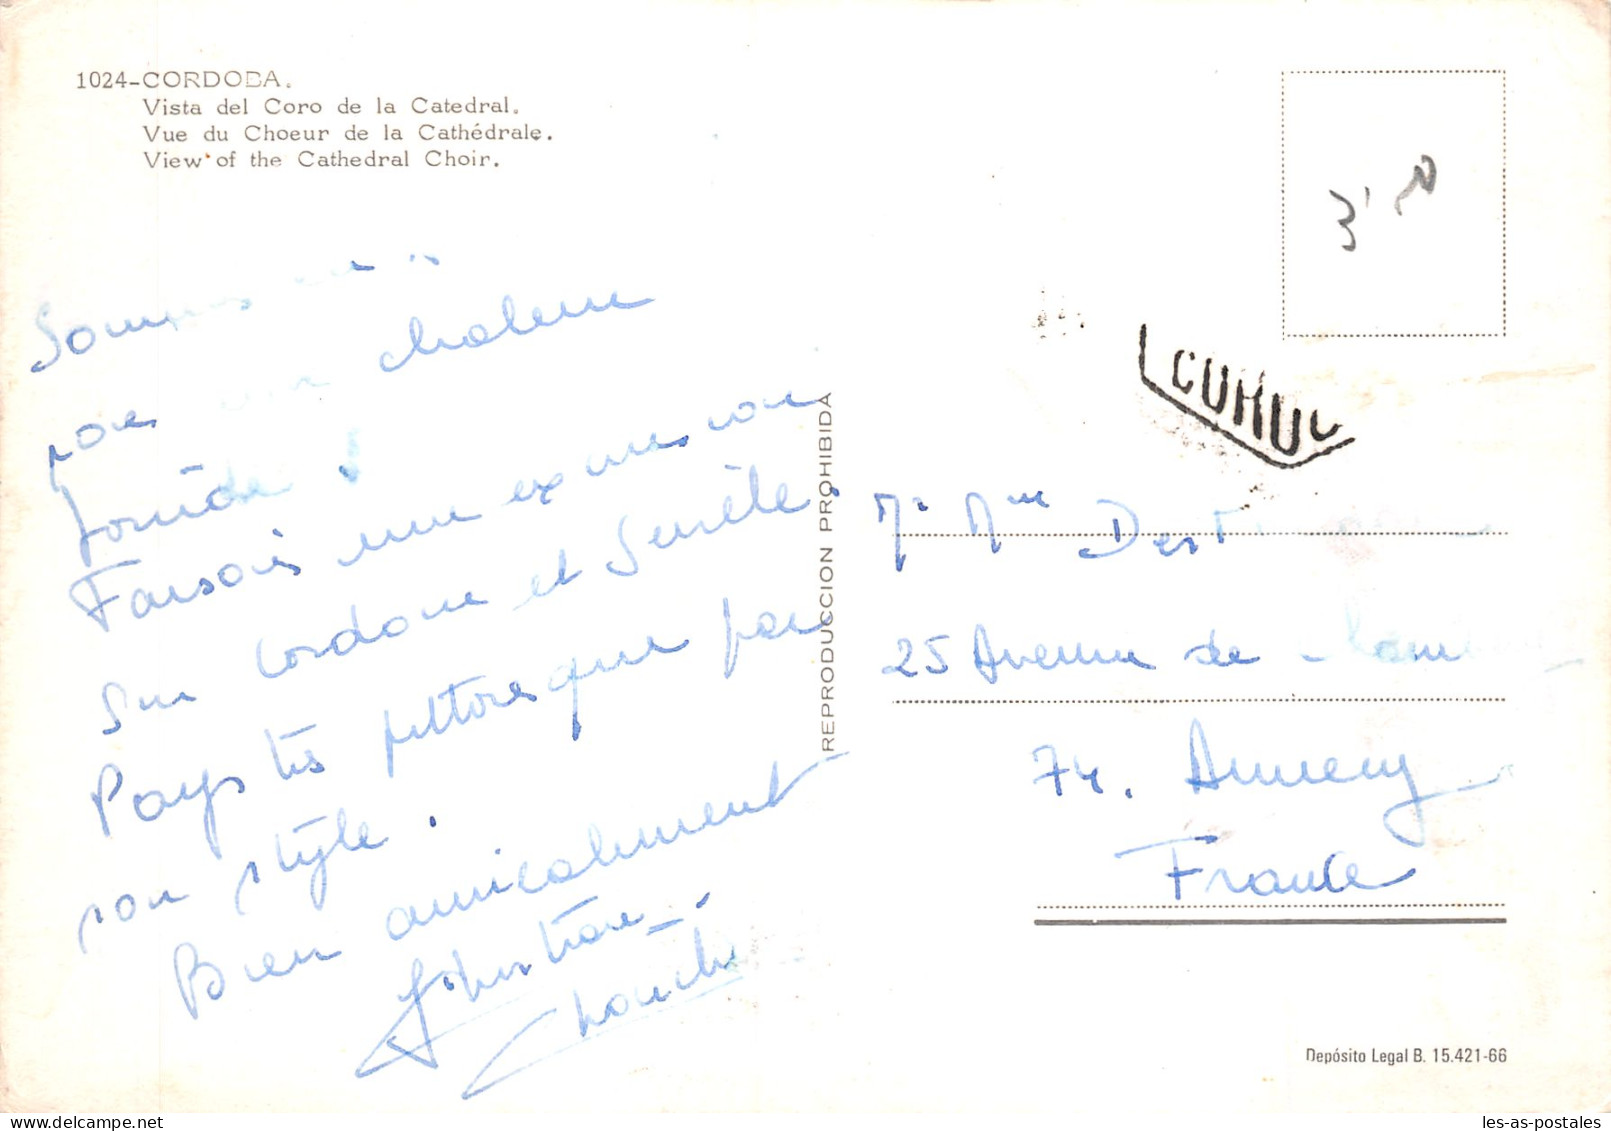 1024-CORDOBA.
Vista del Coro de la Catedral.
Vue du Choeur de la Cathédrale.
View of the Cathedral Choir.
Sommes
par une chaleur
torride !
Faisons une excursion
sur Cordoue et Séville.
Pays très pittoresque par
son style.
Bien amicalement
REPRODUCCION PROHIBIDA
Mme
25 Avenue de
74. Annecy
France
Depósito Legal B. 15.421-66
les-as-postales